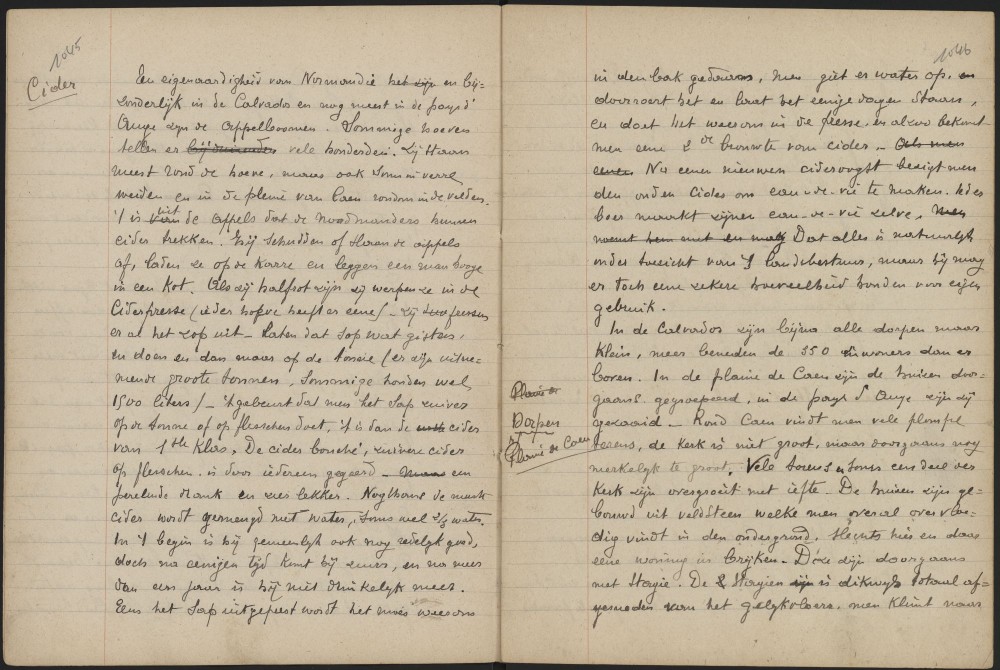 1045
Cider
Een eigenaardigheid van Normandie het zijn en bij-
zonderlijk in de Calvados en nog meest in de pays d'
Auge zijn de appelboomen. Sommige hoeven
tellen er bijduizenden vele honderden. Zij staan
meest rond de hoeve, maar ook soms in verre
weiden en in de pleine van Caen rondom in de velden.
't is uit de appels dat de Noordmanders hunnen
cider trekken. Zij schudden of slaan de appels
af, laden ze op de karre en leggen een man hooge
in een kot. Als zij halfrot zijn zij werpen ze in de
Ciderpresse (ieder hoeve heeft er eene) - zij persen
er al het zop uit - Laten dat sap wat gisten,
en doen en dan maar op de tonne (er zijn uitne-
mende groote tonnen, sommige houden wel
1500 liters) - 't gebeurt dat men het sap zuiver
op de tonne of op flesschen doet, 't is dan de cider
van 1ste klas. De cider bouché, zuivere cider
op flesschen is door iedereen gegeerd - een
perelende drank en zeer lekker. Nogthans de meeste
cider wordt gemengd met water, soms wel 2/3 water.
In 't begin is hij gemeenlijk ook nog redelijk goed,
doch na eenigen tijd komt hij zuur, en na meer
dan een jaar is hij niet drinkelijk meer.
Eens het sap uitgeperst wordt het moes weerom
1046
in den bak gedaan, men giet er water op, en
doorroert het en laat het eenige dagen staan,
en doet het weerom in de presse en alzoo bekomt
men eene 2de brouwte van cider. - Als men
eenen Na eenen nieuwen cideroogst bezigt men
den ouden Cider om eau-de-vie te maken. Ieder
boer maakt zijnen eau-de-vie zelve, Men
noemt hem met en mag Dat alles is natuurlijk
onder toezicht van 't landsbestuur, maar hij mag
er toch eene zekere hoeveelheid houden voor eigen
gebruik.
In de Calvados zijn bijna alle dorpen maar
klein, meer beneden de 350 inwoners dan er
boven. In de plaine de Caen zijn de huizen door-
gaans gegroepeerd, in de pays d'Auge zijn zij
gezaaid - Rond Caen vindt men vele plompe
torens, de kerk is niet groot, maar doorgaans nog
merkelijk te groot. Vele torens en soms een deel der
kerk zijn overgroeit met iefte. De huizen zijn ge-
bouwd uit veldsteen welke men overal overvloe-
dig vindt in den ondergrond. Slechts hier en daar
eene woning in brijken. Deze zijn doorgaans
met stagie. De stagien zijn is dikwijls totaal af-
gesneden van het gelijkvloers. men klimt naar
Plaine
Dorpen
of
Plaine de Caen